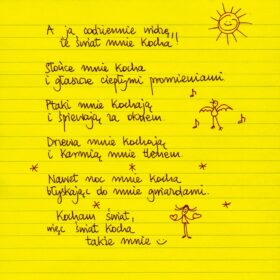 A ja codziennie widzę,
że świat mnie Kocha!!
Słońce mnie kocha
i głaszcze ciepłymi promieniami.
Ptaki mnie kochają
i śpiewają za oknem.
Drzewa mnie kochają
i karmią mnie tlenem.
Nawet noc mnie kocha
błyskając do mnie gwiazdami.
Kocham świat,
więc świat kocha
także mnie